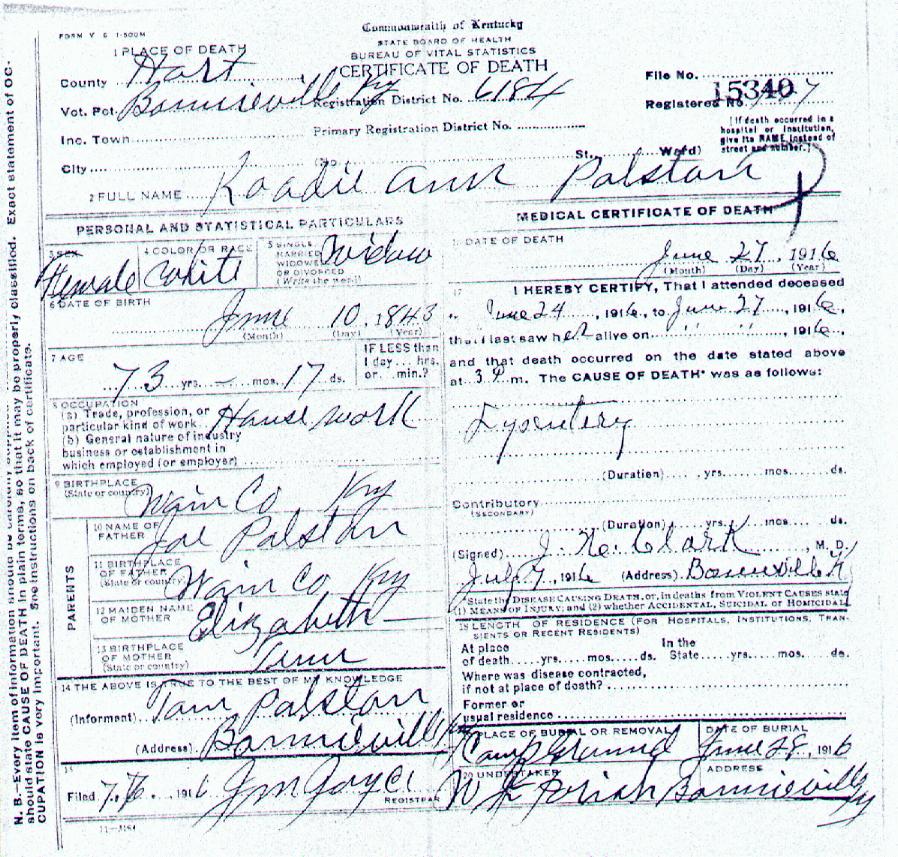 FORM V S 1-500M
Commonwealth of Kentucky
STATE BOARD OF HEALTH
BUREAU OF VITAL STATISTICS
CERTIFICATE OF DEATH
1 PLACE OF DEATH
County Hart
Vot. Pct. Bonnieville Ky
Registration District No. 6184
File No. 15340
Registered No.
Inc. Town
Primary Registration District No.
[If death occurred in a hospital or institution, give its NAME instead of street and number.]
City (No. St., Ward)
2 FULL NAME Roadie Ann Palston
PERSONAL AND STATISTICAL PARTICULARS
3 SEX Female
4 COLOR OR RACE White
5 SINGLE MARRIED WIDOWED OR DIVORCED (Write the word) Widow
6 DATE OF BIRTH June 10, 1843
(Month) (Day) (Year)
7 AGE 73 yrs. – mos. 17 ds.
IF LESS than 1 day ... hrs. or ... min.?
8 OCCUPATION
(a) Trade, profession, or particular kind of work House work
(b) General nature of industry business or establishment in which employed (or employer)
9 BIRTHPLACE (State or country) Wain Co Ky
PARENTS
10 NAME OF FATHER Joe Palston
11 BIRTHPLACE OF FATHER (State or country) Wain Co Ky
12 MAIDEN NAME OF MOTHER Elizabeth —
13 BIRTHPLACE OF MOTHER (State or country) Tenn
14 THE ABOVE IS TRUE TO THE BEST OF MY KNOWLEDGE
(Informant) Tom Palston
(Address) Bonnieville Ky
15
Filed 1916 Jm Joyce
REGISTRAR
MEDICAL CERTIFICATE OF DEATH
DATE OF DEATH
June 27, 1916
(Month) (Day) (Year)
17 I HEREBY CERTIFY, That I attended deceased
June 24, 1916, to June 27, 1916,
that I last saw her alive on " " , 1916,
and that death occurred on the date stated above
at 3 P m. The CAUSE OF DEATH* was as follows:
Dysentery
(Duration) yrs. mos. ds.
Contributory
(SECONDARY)
(Duration) yrs. mos. ds.
(Signed) Clark, M. D.
July 7, 1916 (Address) Bonnieville K
*State the DISEASE CAUSING DEATH, or, in deaths from VIOLENT CAUSES state
(1) MEANS OF INJURY; and (2) whether ACCIDENTAL, SUICIDAL or HOMICIDAL
18 LENGTH OF RESIDENCE (FOR HOSPITALS, INSTITUTIONS, TRANSIENTS OR RECENT RESIDENTS)
At place of death yrs. mos. ds. In the State yrs. mos. ds.
Where was disease contracted,
if not at place of death?
Former or
usual residence
PLACE OF BURIAL OR REMOVAL Camp Ground
DATE OF BURIAL June 28, 1916
20 UNDERTAKER
ADDRESS Bonnieville Ky
N. B.—Every item of information should be carefully supplied
should state CAUSE OF DEATH in plain terms, so that it may be properly classified. Exact statement of OCCUPATION is very important. See instructions on back of certificate.